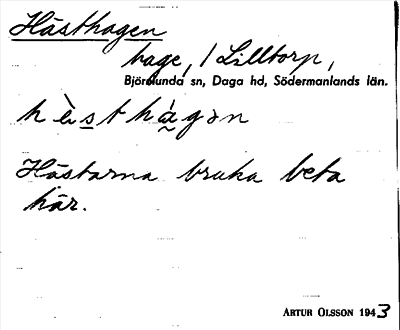 Hästhagen
hage, / Lilltorp,
Björnlunda sn, Daga hd, Södermanlands län.
hằs̲thá̰gən
Hästarna bruka beta
här.
ARTUR OLSSON 1943